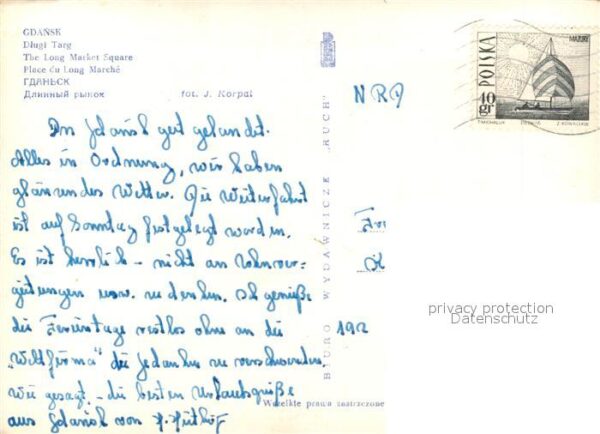 GDAŃSK
Długi Targ
The Long Market Square
Place du Long Marché
ГДАНЬСК
Длинный рынок
fot. J. Korpal
BIURO WYDAWNICZE "RUCH"
NRD
POLSKA
MAZURY
40 gr
In Gdańsk gut gelandet.
Alles in Ordnung, wir haben
glänzendes Wetter. Die Weiterfahrt
ist auf Sonntag festgelegt worden.
Es ist herrlich - nicht an Lohnver-
gütungen usw. zu denken. Ich genieße
die Ferientage restlos ohne an die
"Weltfirma" die Gedanken zu verschwenden.
Wie gesagt - die besten Urlaubsgrüße
aus Gdańsk von
192
Wszelkie prawa zastrzeżone
privacy protection
Datenschutz